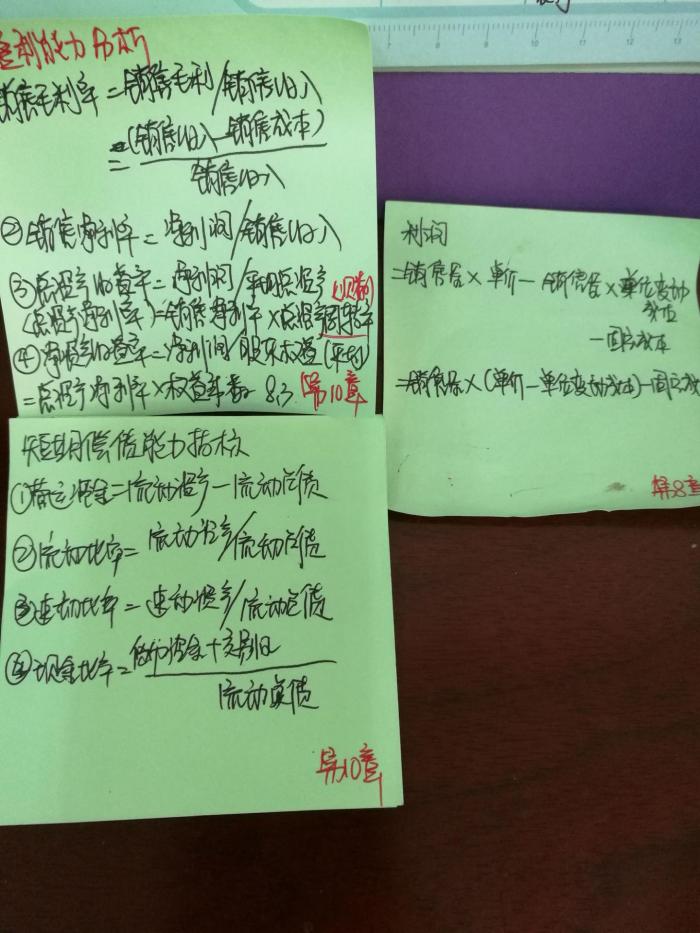 盈利能力分析
销售毛利率=销售毛利/销售收入
=(销售收入-销售成本)
销售收入
②销售净利率=净利润/销售收入
③总资产收益率=净利润/平均总资产
(总资产净利率)=销售净利率×总资产周转率
④净资产收益率=净利润/股东权益(平均)
=总资产净利率×权益乘数
第10章
短期偿债能力指标
①营运资金=流动资产-流动负债
②流动比率=流动资产/流动负债
③速动比率=速动资产/流动负债
④现金比率=货币资金+交易性
流动负债
第10章
利润
=销售量×单价-销售量×单位变动
成本
-固定成本
=销售量×(单价-单位变动成本)-固定成
第8章
7 8 9 10 11 12 13